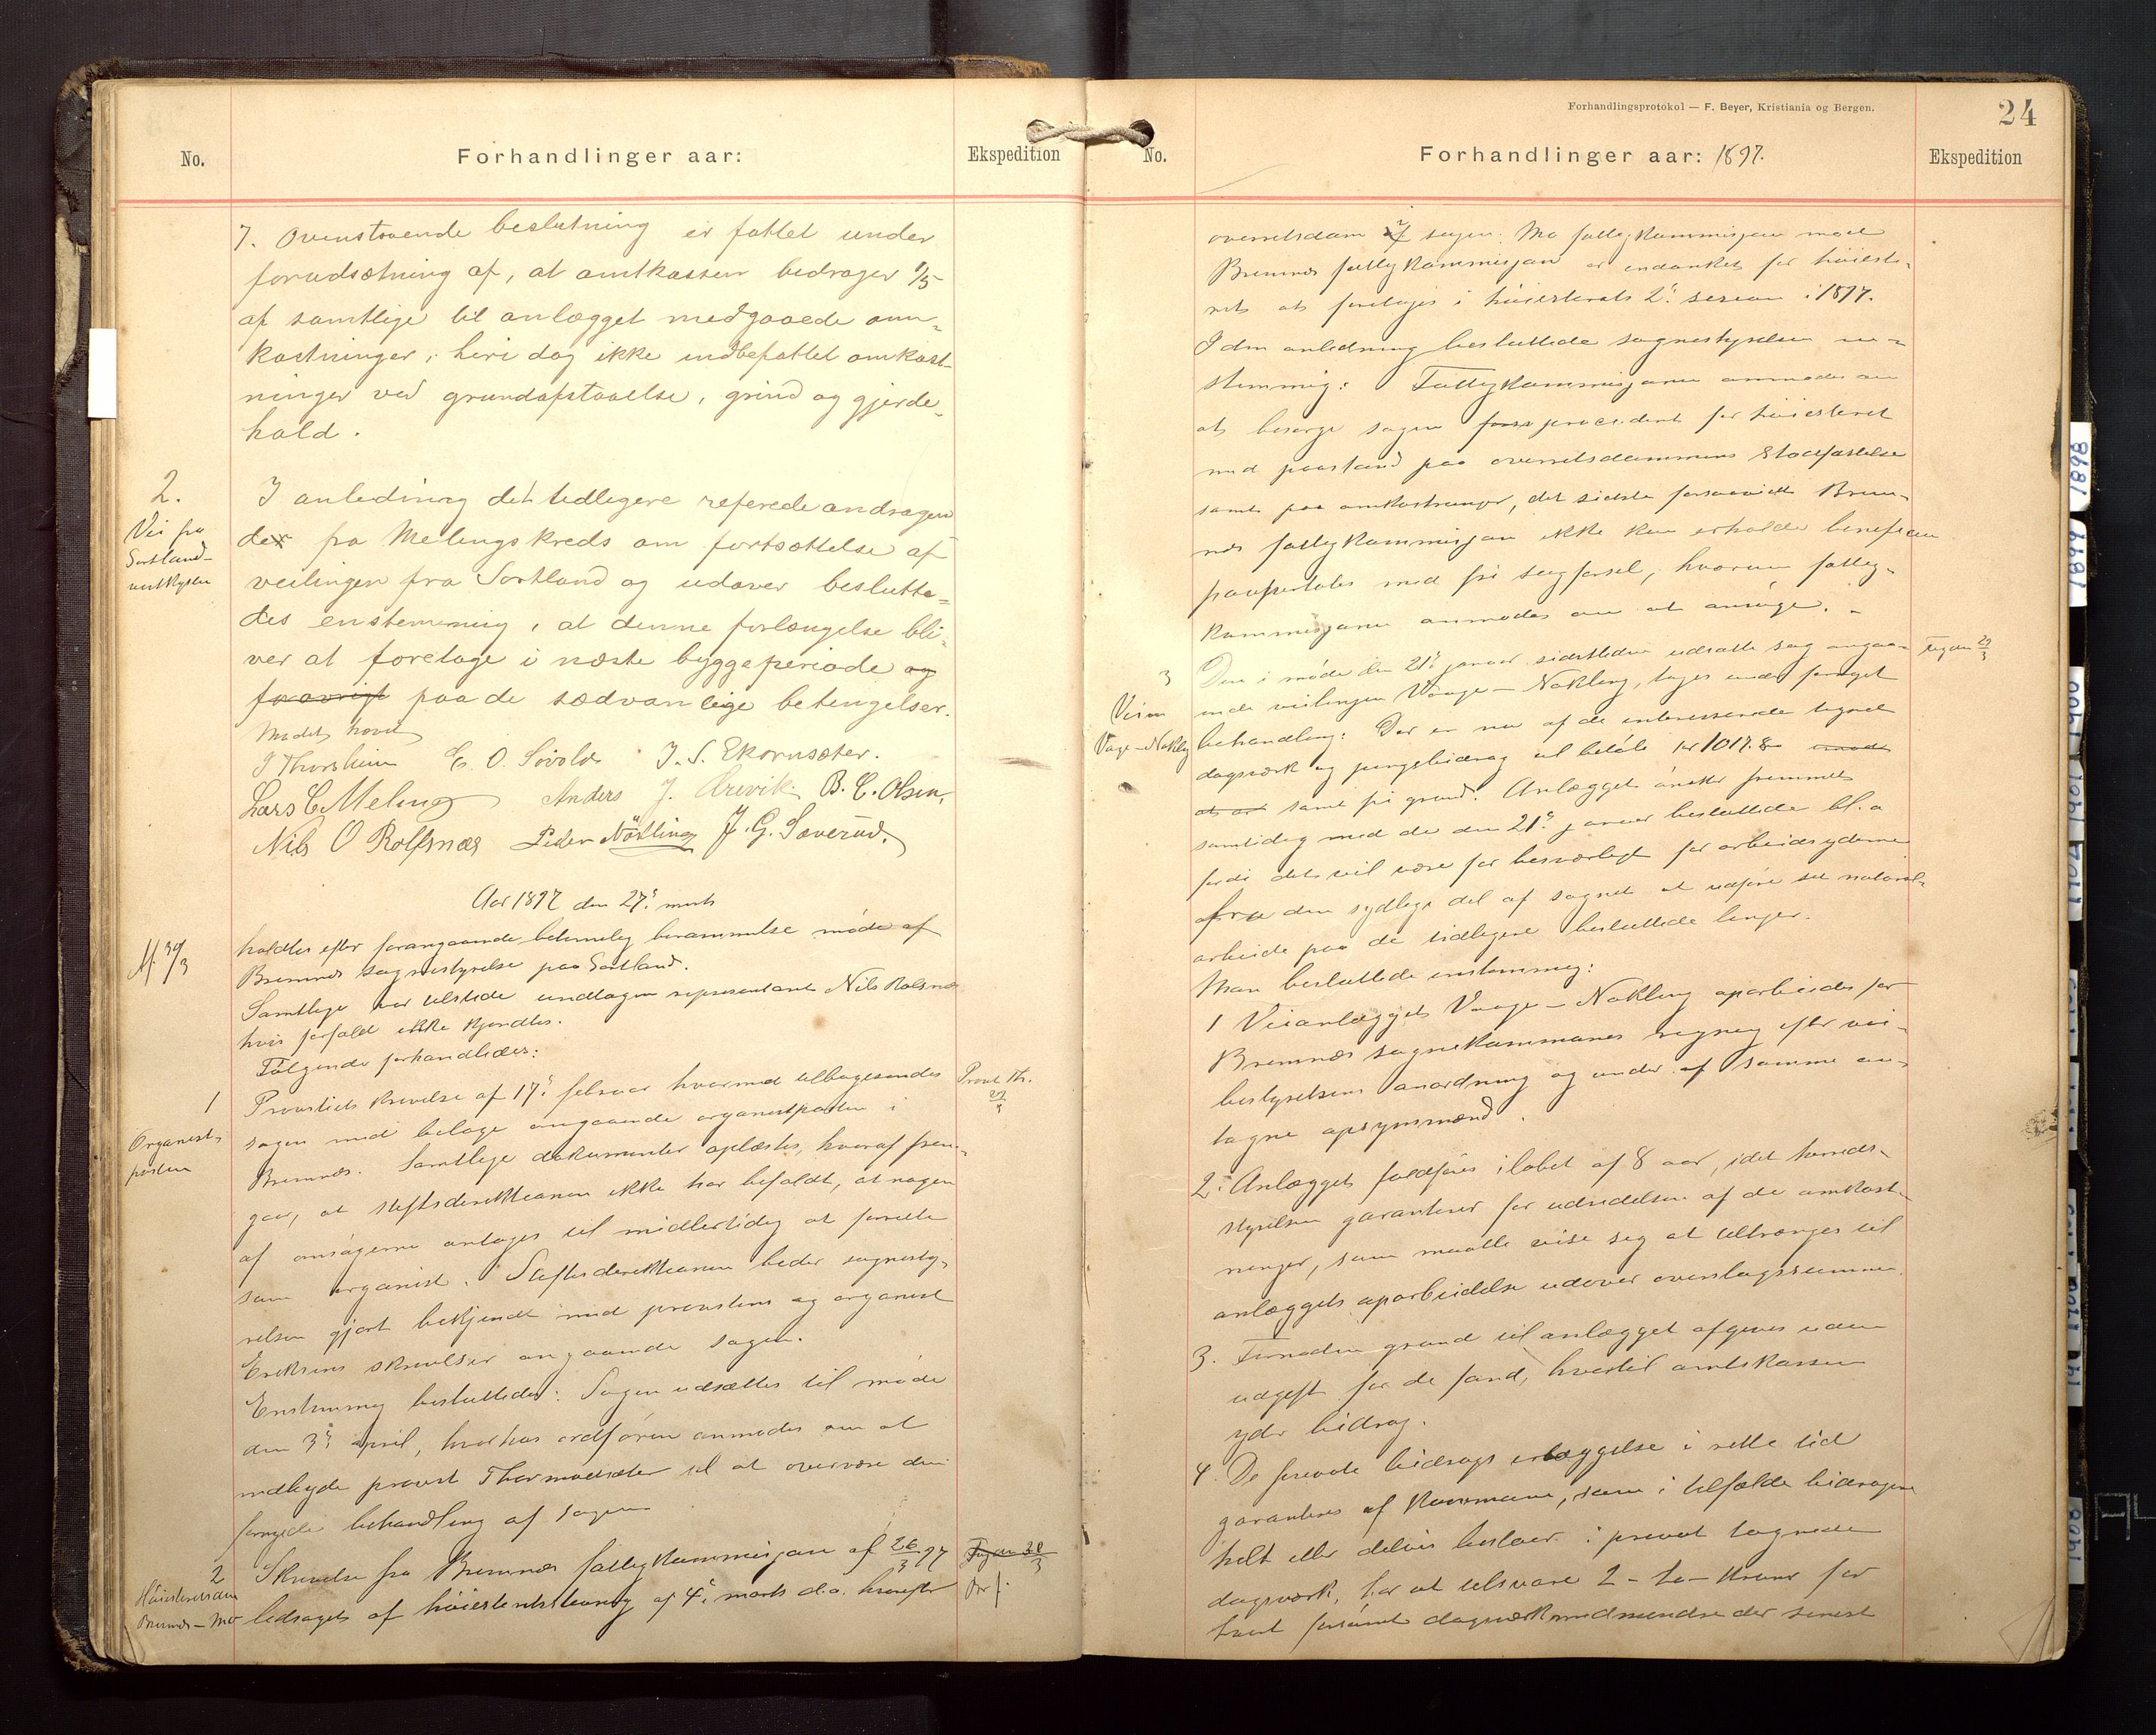 No.
Forhandlinger aar:
Ekspedition
7. Ovenstaaende beslutning er fattet under
forudsætning af, at amtkassen bedrager 1/5
af samtlige til anlægget medgaaede om-
kostninger, heri dog ikke indbefattet omkost-
ninger ved grundafstaaelse, grind og gjerde-
hold.
2.
Vei fra
Sortland-
vestkysten
I anledning det tidligere referede andragen
der fra Melings kreds om fortsættelse af
veilinjen fra Sortland og udover beslutte-
des enstemmig, at denne forlængelse bli-
ver at foretage i næste byggeperiode og
forøvrigt paa de sædvanlige betingelser.
Mødet hævet
J Thorsheim E. O. Sivols J. S. Ekornsæter.
Lars C Meling Anders J. Ørevik B. C. Olsen,
Nils O Rolfsnæs Peder Nökling J. G. Sæverud.
Aar 1897 den 27. marts
Af. 30/3
holdtes efter forangaaende betimelig berammelse møde af
Bremnes sognestyrelse paa Sortland.
Samtlige var tilstede undtagen repræsentant Nils Rolfsnæs
hvis forfald ikke kjendtes.
Følgende forhandledes:
1
Organist-
posten
Provstiets skrivelse af 17. februar hvormed tilbagesendes
sagen med bilage angaaende organistposten i
Bremnes. Samtlige dokumenter oplæstes, hvoraf frem-
gaar, at stiftsdirektionen ikke har befaldt, at nogen
af ansøgerne antages til midlertidig at forrette
som organist. Stiftsdirektionen beder sognesty-
relsen gjort bekjendt med provstens og organist
Eriksens skrivelser angaaende sagen.
Enstemmig besluttedes: Sagen udsættes til møde
den 3. april, hvorhos ordføren anmodes om at
indbyde provst Thormodsæter til at overvære den
fornyede behandling af sagen
Provst Th.
29/3
2
Høiesteretsdom
Bremnes-Mo
Skrivelse fra Bremnes fattigkommisjon af 26/3 97
ledsaget af høiesteretsstevning af 4. marts d.a. hvorefter
30/3
Forhandlingsprotokol — F. Beyer, Kristiania og Bergen.
24
No.
Forhandlinger aar: 1897.
Ekspedition
overretsdom i sagen: Mo fattigkommisjon mod
Bremnes fattigkommisjon er indanket for høieste-
ret at foretages i høiesterets 2. session i 1897.
I den anledning besluttede sognestyrelsen en-
stemmig: Fattigkommisjonen anmodes om
at besørge sagen procederet for høiesteret
med paastand paa overretsdommens stadfæstelse
samt paa omkostninger, det sidste forsaavidt Brem-
nes fattigkommisjon ikke kan erholde beneficium
paupertatis med fri sagførsel, hvorom fattig-
kommisjonen anmodes om at ansøge. -
3
Veien
Vaage-Nökling
Den i møde den 21. januar sidstleden udsatte sag angaa-
ende veilinjen Vaage - Nökling, toges under fornyet
behandling: Der er nu af de interesserede tegnet
dagsværk og pengebidrag til beløb kr 1017.80
samt fri grund. Anlægget ønskes fremmet
samtidig med de den 21. januar besluttede bl.a
fordi det vil være for besværligt for arbeidsyderne
fra den sydlige del af sognet at udføre sit natural-
arbeide paa de tidligere besluttede linjer.
29/3
Man besluttede enstemmig:
1 Veianlægget Vaage - Nökling oparbeides for
Bremnes sognekommunes regning efter vei-
bestyrelsens anordning og under af samme an-
tagne opsynsmænd.
2. Anlægget fuldføres i løbet af 8 aar, idet herreds-
styrelsen garanterer for udredelsen af de omkost-
ninger, som maatte vise seg at tiltrænges til
anlæggets oparbeidelse udover overslagssummen.
3. Fornøden grund til anlægget afgives uden
udgift for de fond, hvortil amtskassen
yder bidrag.
4. De private bidrags erlæggelse i rette tid
garanteres af kommunen, som i tilfælde bidragene
helt eller delvis bestaar i privat tegnede
dagsværk, har at tilsvare 2 - to - kroner for
hvert forsømt dagsværk medmindre der senest
1898
1899
1900
1901
1902
1908